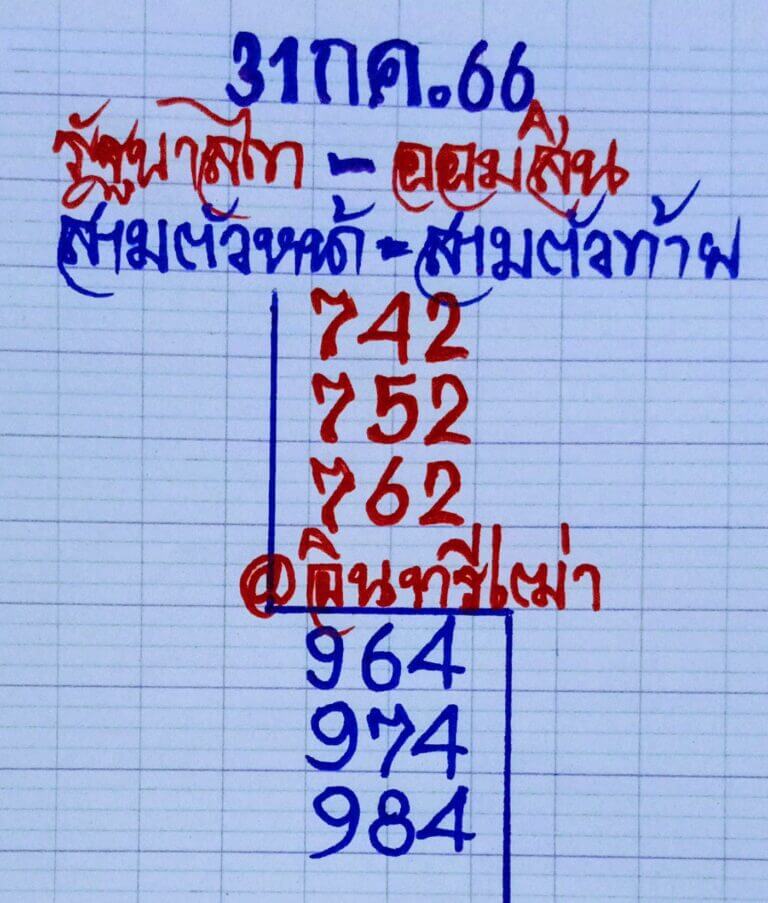 31กค.66
รัฐบาลไท - ออมสิน
สามตัวหน้ - สามตัวท้าย
742
752
762
@อินทรีเฒ่า
964
974
984